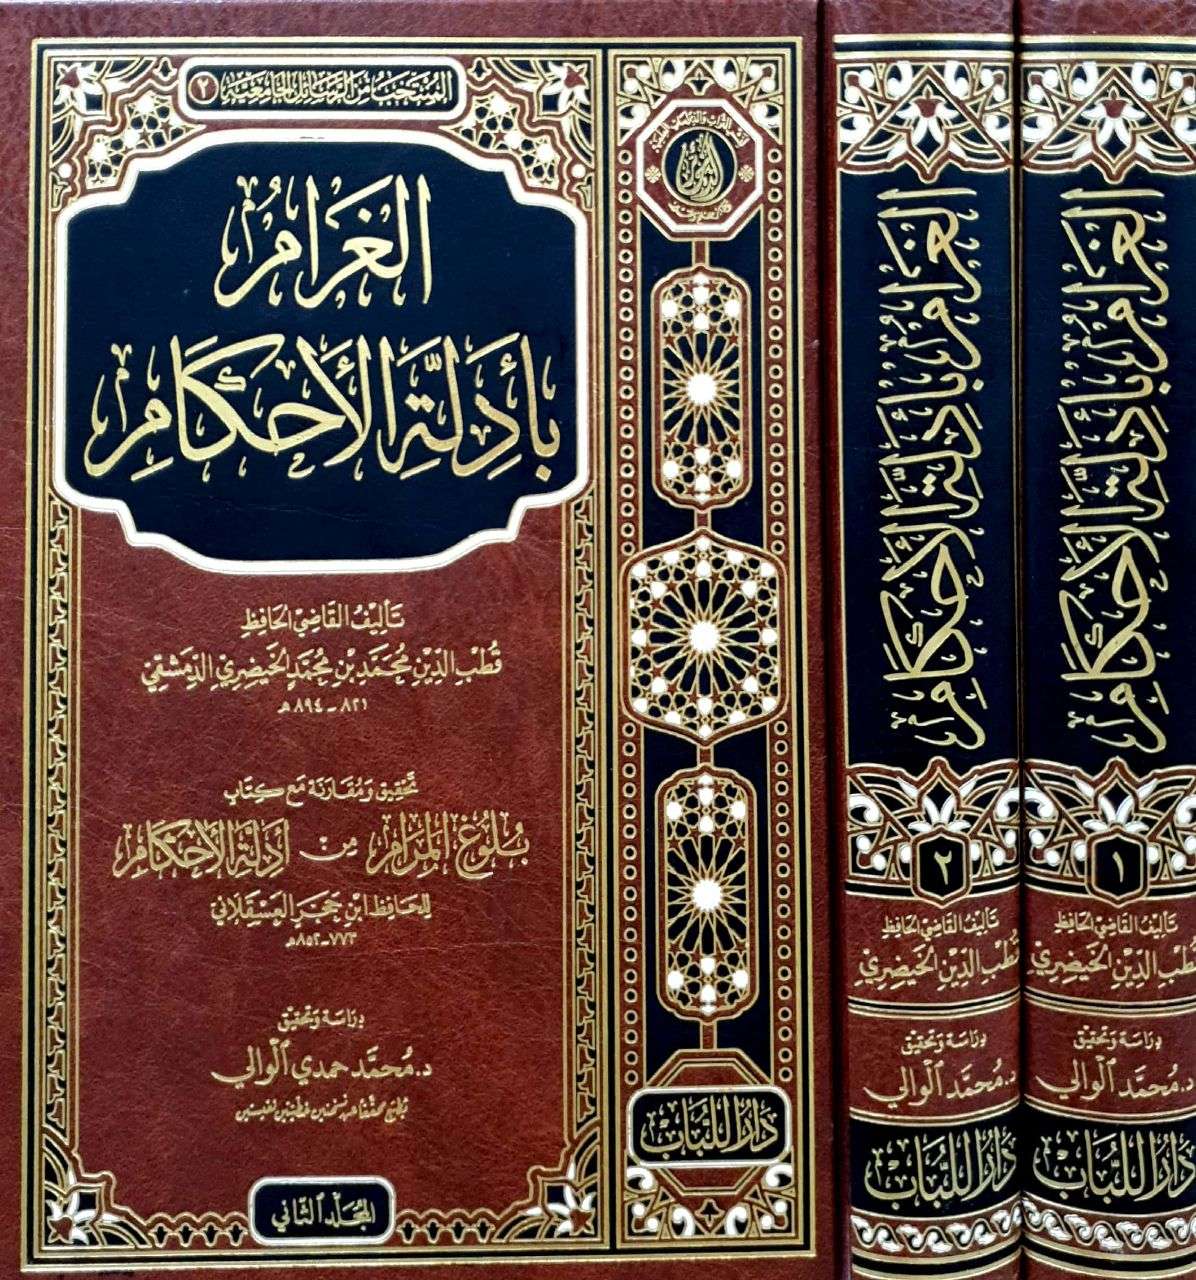 المنتخب من الرسائل الجامعية ٢
الغَرَامُ
بأَدِلَّةِ الأَحْكَامِ
تَأليفُ القَاضِي الحَافِظِ
قُطْبِ الدِّيْنِ مُحَمَّد بْنِ مُحَمَّدٍ الخَيضِرِيِّ الدِّمَشْقِيِّ
٨٢١ - ٨٩٤ هـ
تَحْقِيق وَمُقَارَنَة مَعَ كِتَابِ
بُلُوغ المَرَام مِنْ أَدِلَّةِ الأَحْكَام
لِلحَافِظ ابْنِ حَجَر العَسْقَلَانِي
٧٧٣-٨٥٢هـ
دِرَاسَة وَتَحْقِيق
د. مُحَمَّد حمدي الْوَالي
المُجَلّد الثَّانِي
دَارُ اللُّبَاب
الغَرَامُ بأَدِلَّةِ الأَحْكَامِ
٢
تَأليفُ القَاضِي الحَافِظِ
قُطْبِ الدِّيْنِ الخَيضِرِيِّ
دِرَاسَة وَتَحْقِيق
د. مُحَمَّد الْوَالي
دَارُ اللُّبَاب
الغَرَامُ بأَدِلَّةِ الأَحْكَامِ
١
تَأليفُ القَاضِي الحَافِظِ
قُطْبِ الدِّيْنِ الخَيضِرِيِّ
دِرَاسَة وَتَحْقِيق
د. مُحَمَّد الْوَالي
دَارُ اللُّبَاب